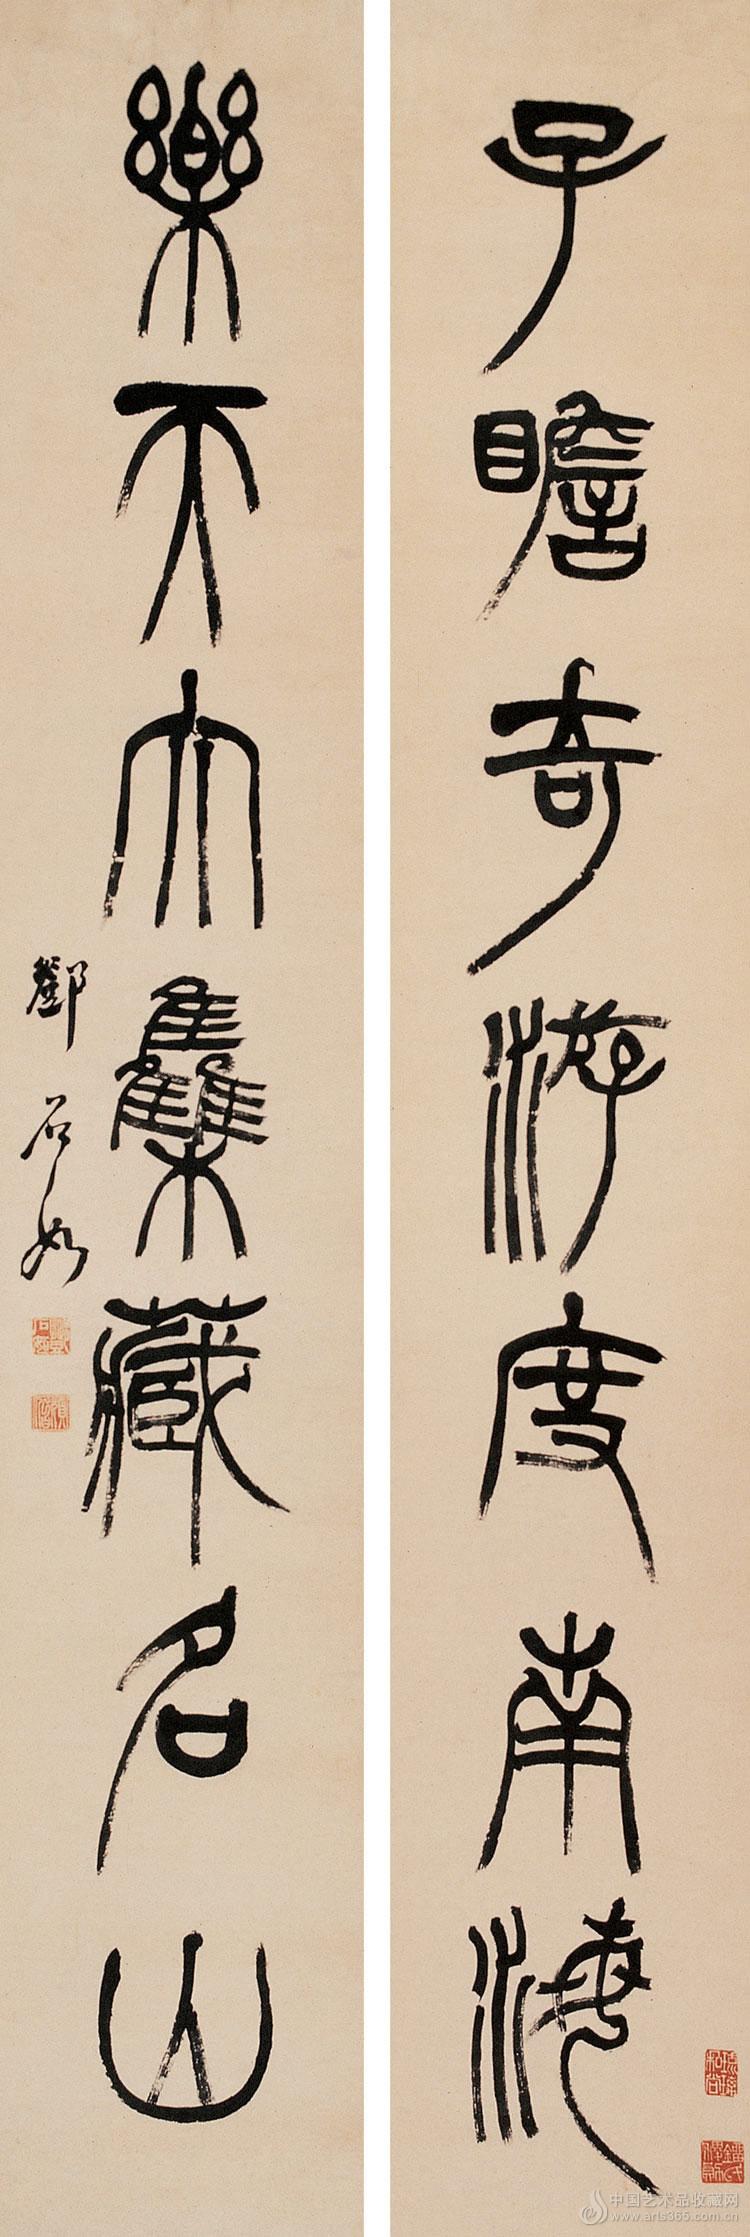 子瞻奇游度南海
樂天大集藏名山
鄧石如
中国艺术品收藏网
www.arts365.com.cn